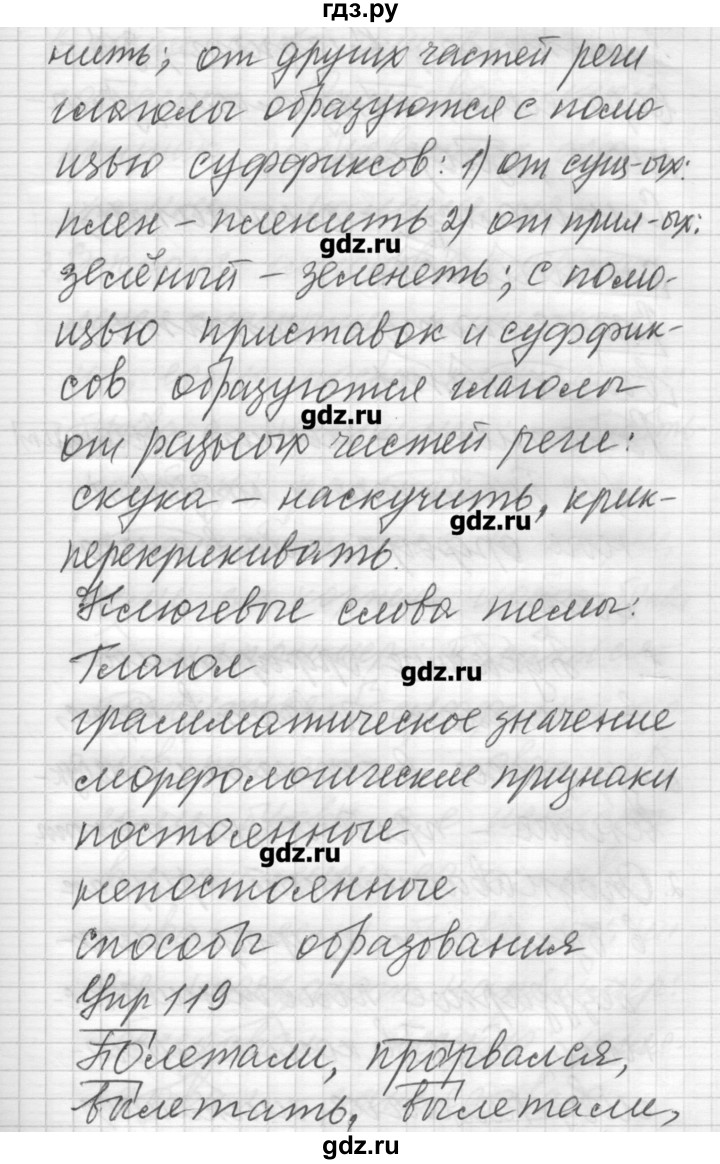 гдз.ру
нить; от других частей речи
глаголы образуются с помо-
щью суффиксов: 1) от сущ-ых:
плен – пленить 2) от прил-ых:
gdz.ru
зелёный – зеленеть; с помо-
щью приставок и суффик-
сов образуются глаголы
gdz.ru
от разных частей речи:
скука – наскучить, крик-
gdz.ru
перекрикивать.
Ключевые слова темы:
Глагол
gdz.ru
грамматическое значение
морфологические признаки
постоянные
gdz.ru
непостоянные
способы образования
Упр 119
Полетали, прорвался,
вылетать, вылетали,
gdz.ru